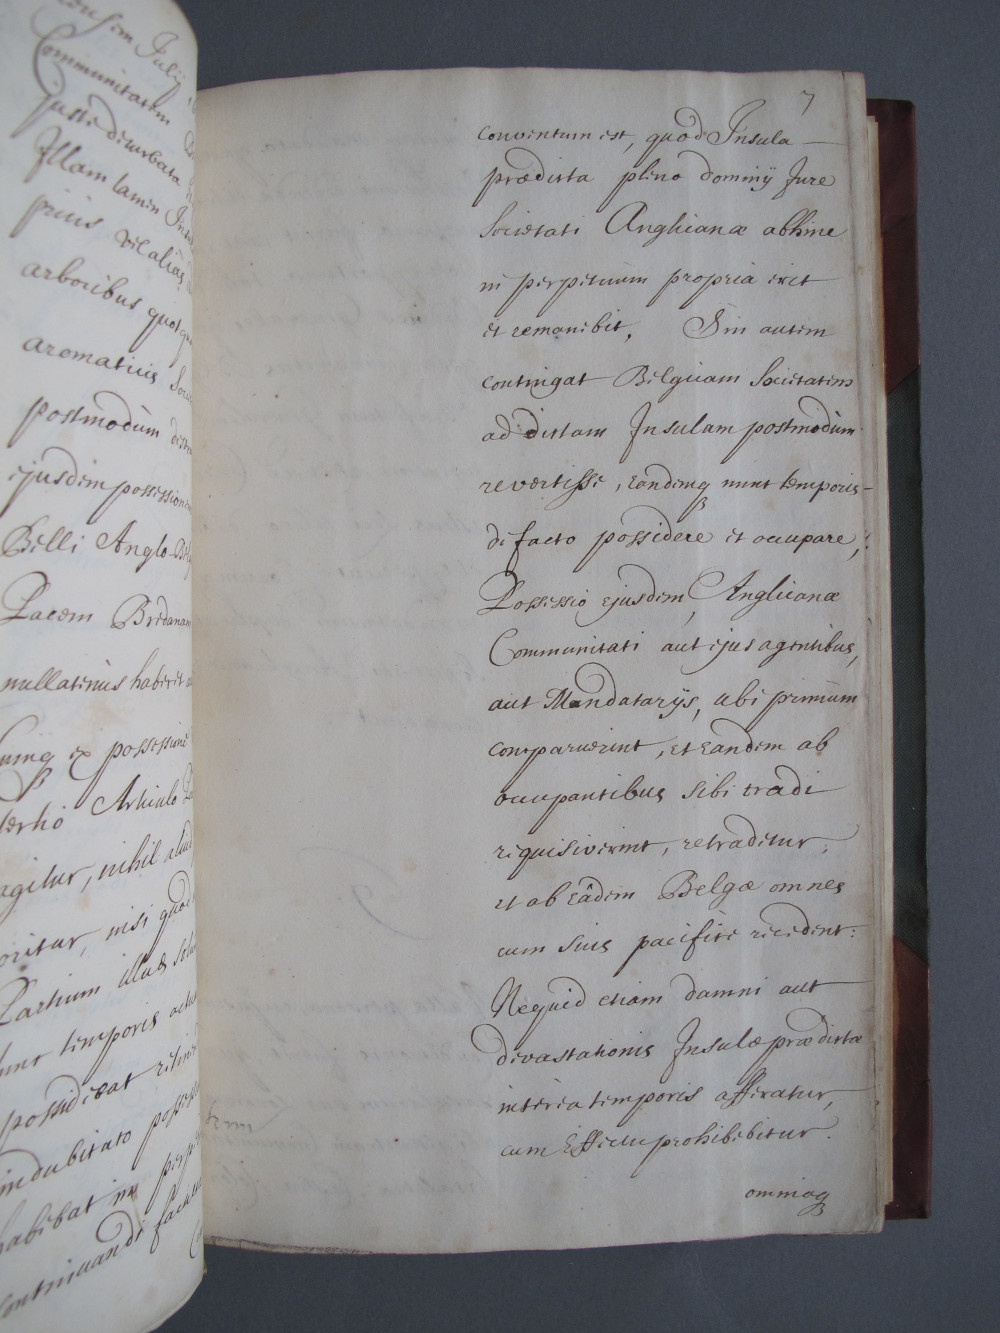 Communitatem
juste deturbata
Illam tamen
prius vel alias
arboribus quot
aromaticis
postmodum
ejusdem possession
Belli Anglo-
Pacem Bredanam
nullatenus haberet
possessione
tertio Articulo
agitur, nihil aliud
oritur, nisi quod
Partium illas
temporis
possideat
indubitato
habebat in
Continuandi
7
conventum est, quod Insula
prædicta pleno dominij Jure
Societati Anglicanæ abhinc
in perpetuum propria erit
et remanebit, Sin autem
contingat Belgicam Societatem
ad dictam Insulam postmodùm
revertisse, Eandemq nunc temporis
de facto possidere et occupare,
Possessio ejusdem, Anglicanæ
Communitati aut ejus agentibus,
aut Mandatarijs, ubi primùm
comparuerint, et Eandem ab
occupantibus sibi tradi
requisiverint, retradetur,
et ab Eâdem Belgæ omnes
cum suis pacifice recedent:
Nequid etiam damni aut
devastationis Insulæ prædictæ
interea temporis afferatur,
cum Effectu prohibebitur.
omniaq